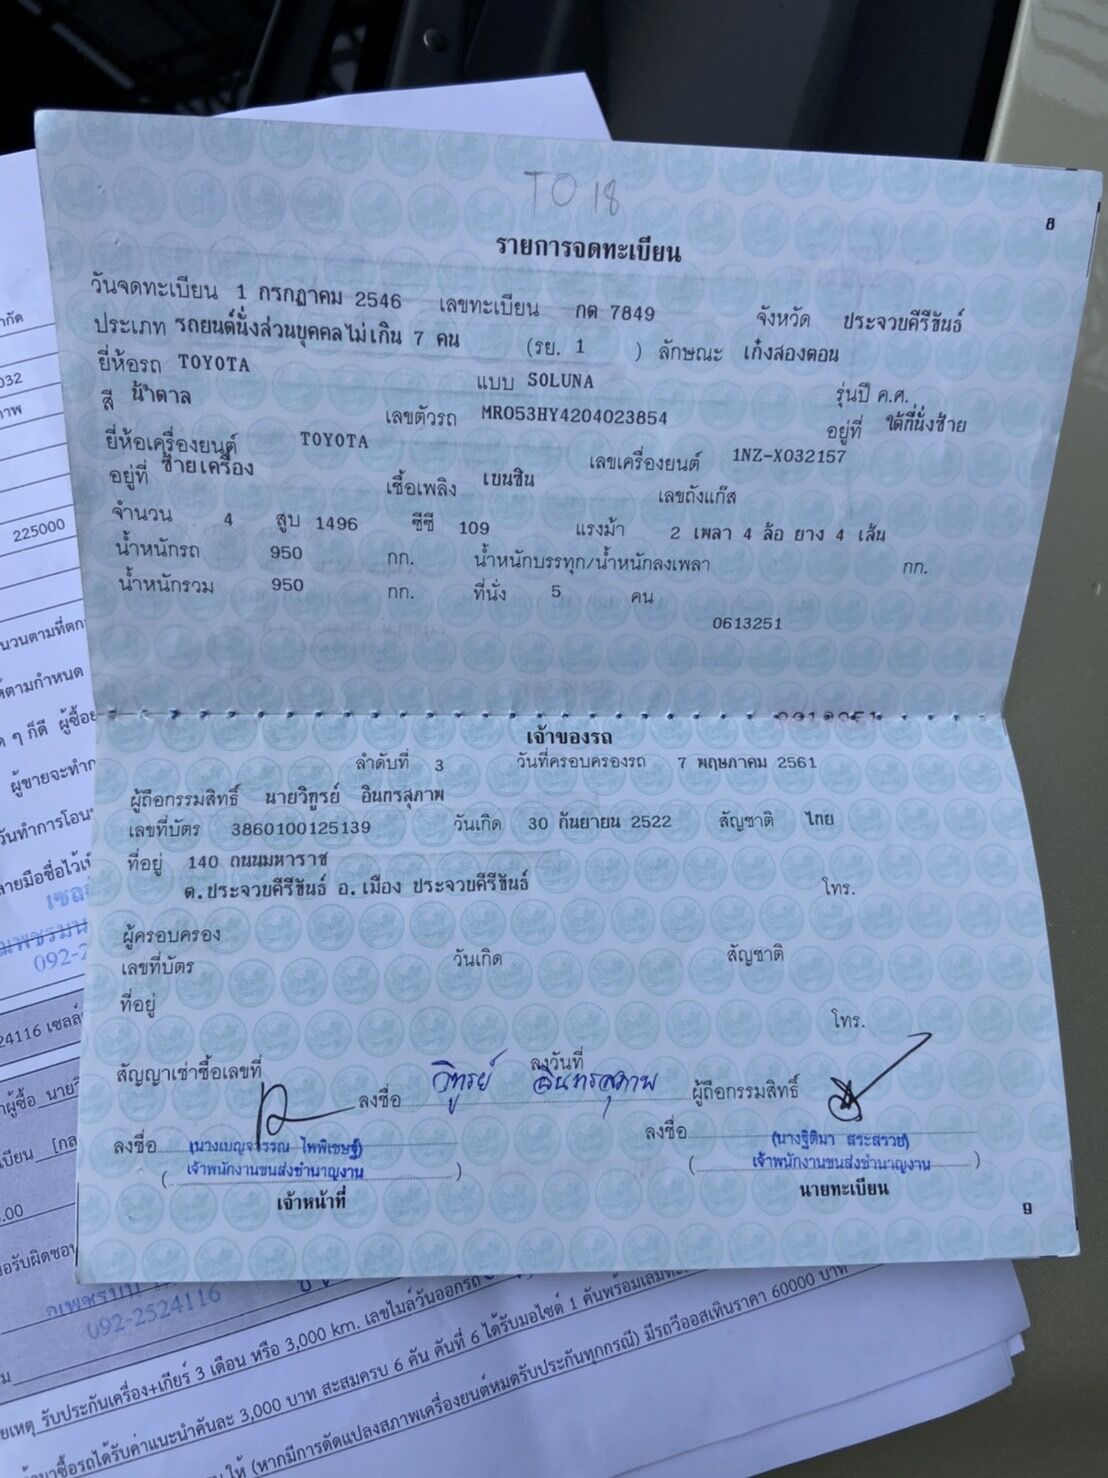 TO 18
8
รายการจดทะเบียน
วันจดทะเบียน 1 กรกฎาคม 2546 เลขทะเบียน กต 7849 จังหวัด ประจวบคีรีขันธ์
ประเภท รถยนต์นั่งส่วนบุคคลไม่เกิน 7 คน (รย. 1 ) ลักษณะ เก๋งสองตอน
ยี่ห้อรถ TOYOTA แบบ SOLUNA รุ่นปี ค.ศ.
สี น้ำตาล เลขตัวรถ MR053HY4204023854 อยู่ที่ ใต้ที่นั่งซ้าย
ยี่ห้อเครื่องยนต์ TOYOTA เลขเครื่องยนต์ 1NZ-X032157
อยู่ที่ ซ้ายเครื่อง เชื้อเพลิง เบนซิน เลขถังแก๊ส
จำนวน 4 สูบ 1496 ซีซี 109 แรงม้า 2 เพลา 4 ล้อ ยาง 4 เส้น
น้ำหนักรถ 950 กก. น้ำหนักบรรทุก/น้ำหนักลงเพลา กก.
น้ำหนักรวม 950 กก. ที่นั่ง 5 คน
0613251
เจ้าของรถ
ลำดับที่ 3 วันที่ครอบครองรถ 7 พฤษภาคม 2561
ผู้ถือกรรมสิทธิ์ นายวิฑูรย์ อินทรสุภาพ
เลขที่บัตร 3860100125139 วันเกิด 30 กันยายน 2522 สัญชาติ ไทย
ที่อยู่ 140 ถนนมหาราช
ต.ประจวบคีรีขันธ์ อ.เมือง ประจวบคีรีขันธ์ โทร.
ผู้ครอบครอง
เลขที่บัตร วันเกิด สัญชาติ
ที่อยู่
โทร.
สัญญาเช่าซื้อเลขที่ ลงวันที่
ลงชื่อ วิฑูรย์ อินทรสุภาพ ผู้ถือกรรมสิทธิ์
ลงชื่อ (นางเบญจวรรณ ไพพิเชษฐ์) ลงชื่อ (นางฐิติมา สระสรวย)
(เจ้าพนักงานขนส่งชำนาญงาน) (เจ้าพนักงานขนส่งชำนาญงาน)
เจ้าหน้าที่ นายทะเบียน
9
225000
ห้ตามกำหนด
ๆ ก็ดี ผู้ซื้อ
ผู้ขายจะทำ
วันทำการโอน
ลายมือชื่อไว้
092-2
24116 เซลล์
ผู้ซื้อ
092-2524116
รับประกันเครื่อง+เกียร์ 3 เดือน หรือ 3,000 km. เลขไมล์วันออกรถ
ซื้อรถได้รับค่าแนะนำคันละ 3,000 บาท สะสมครบ 6 คัน คันที่ 6 ได้รับมอไซด์ 1 คันพร้อมเล่มทะเ
ให้ (หากมีการดัดแปลงสภาพเครื่องยนต์หมดรับประกันทุกกรณี) มีรถวีออสเทินราคา 60000 บาท